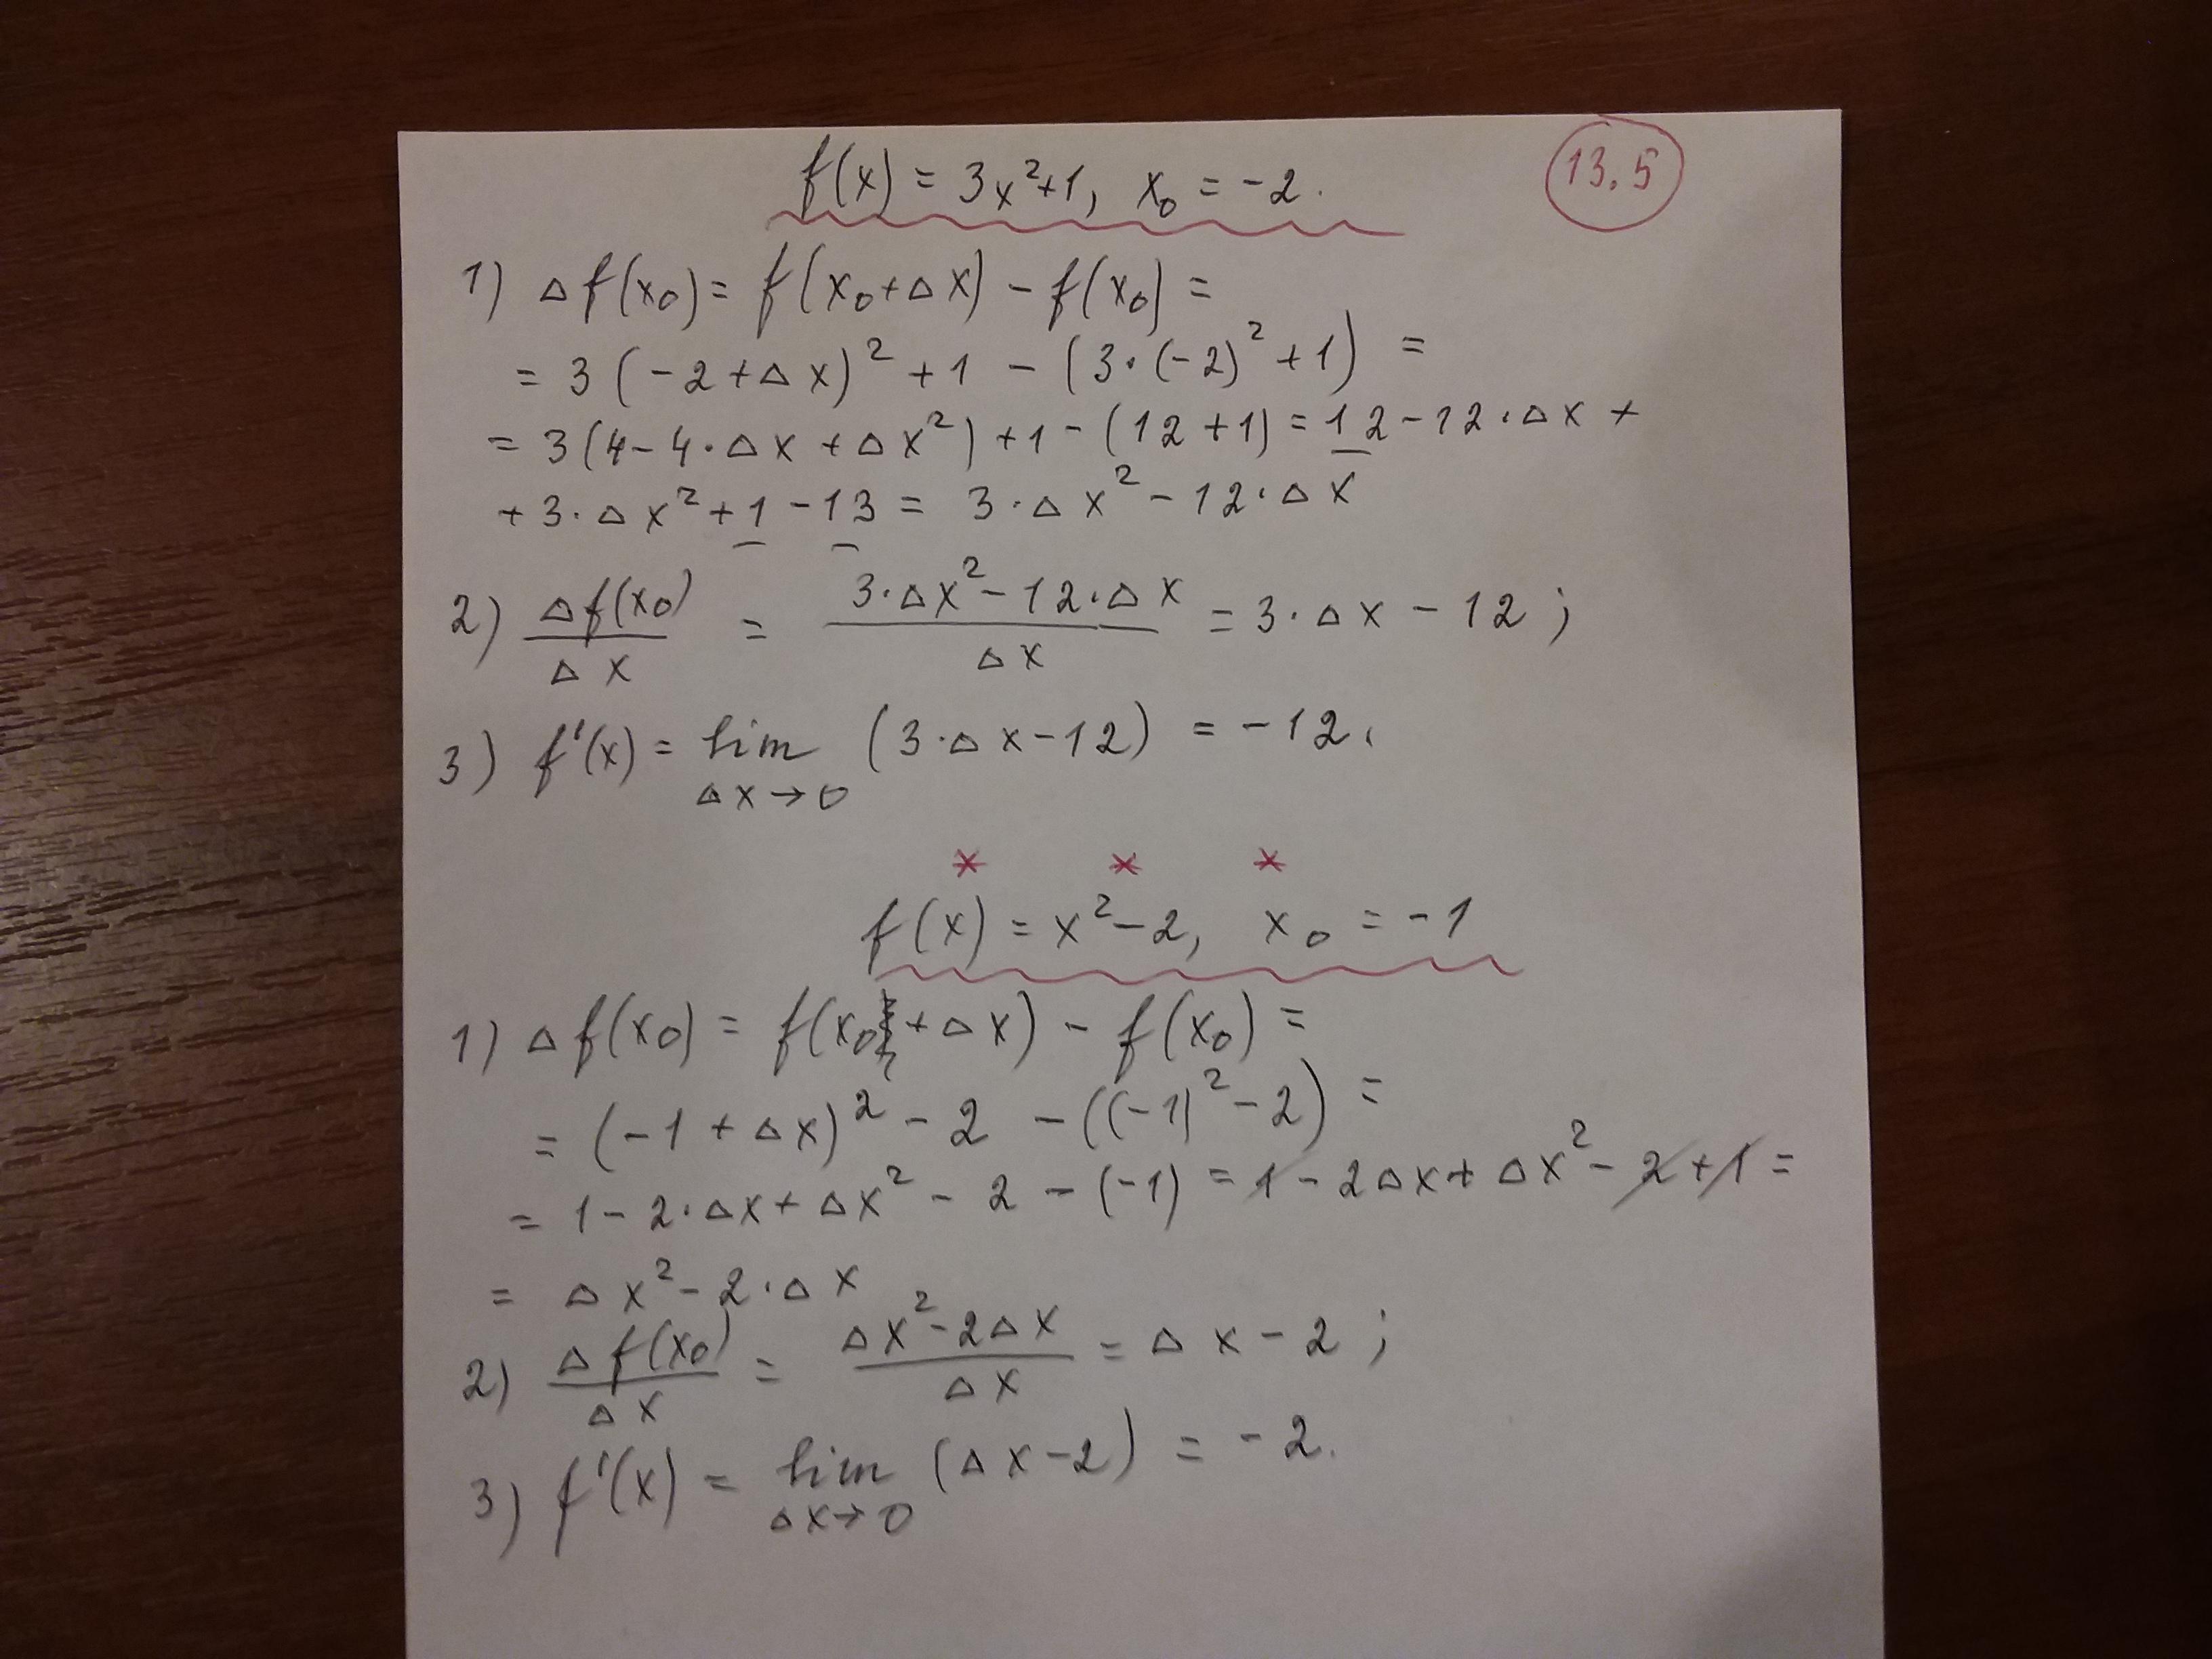 f(x) = 3x²+1, x₀ = -2. 13.5
1) Δf(x₀) = f(x₀+Δx) - f(x₀) =
= 3(-2+Δx)² + 1 - (3·(-2)² + 1) =
= 3(4-4·Δx+Δx²)+1-(12+1) = 12-12·Δx+
+3·Δx²+1-13 = 3·Δx²-12·Δx
2) Δf(x₀)/Δx = (3·Δx²-12·Δx)/Δx = 3·Δx-12;
3) f'(x) = lim (3·Δx-12) = -12.
Δx→0
* * *
f(x) = x²-2, x₀ = -1
1) Δf(x₀) = f(x₀+Δx) - f(x₀) =
= (-1+Δx)² - 2 - ((-1)²-2) =
= 1-2·Δx+Δx²-2-(-1) = 1-2Δx+Δx²-2+1 =
= Δx²-2·Δx
2) Δf(x₀)/Δx = (Δx²-2Δx)/Δx = Δx-2;
3) f'(x) = lim (Δx-2) = -2.
Δx→0